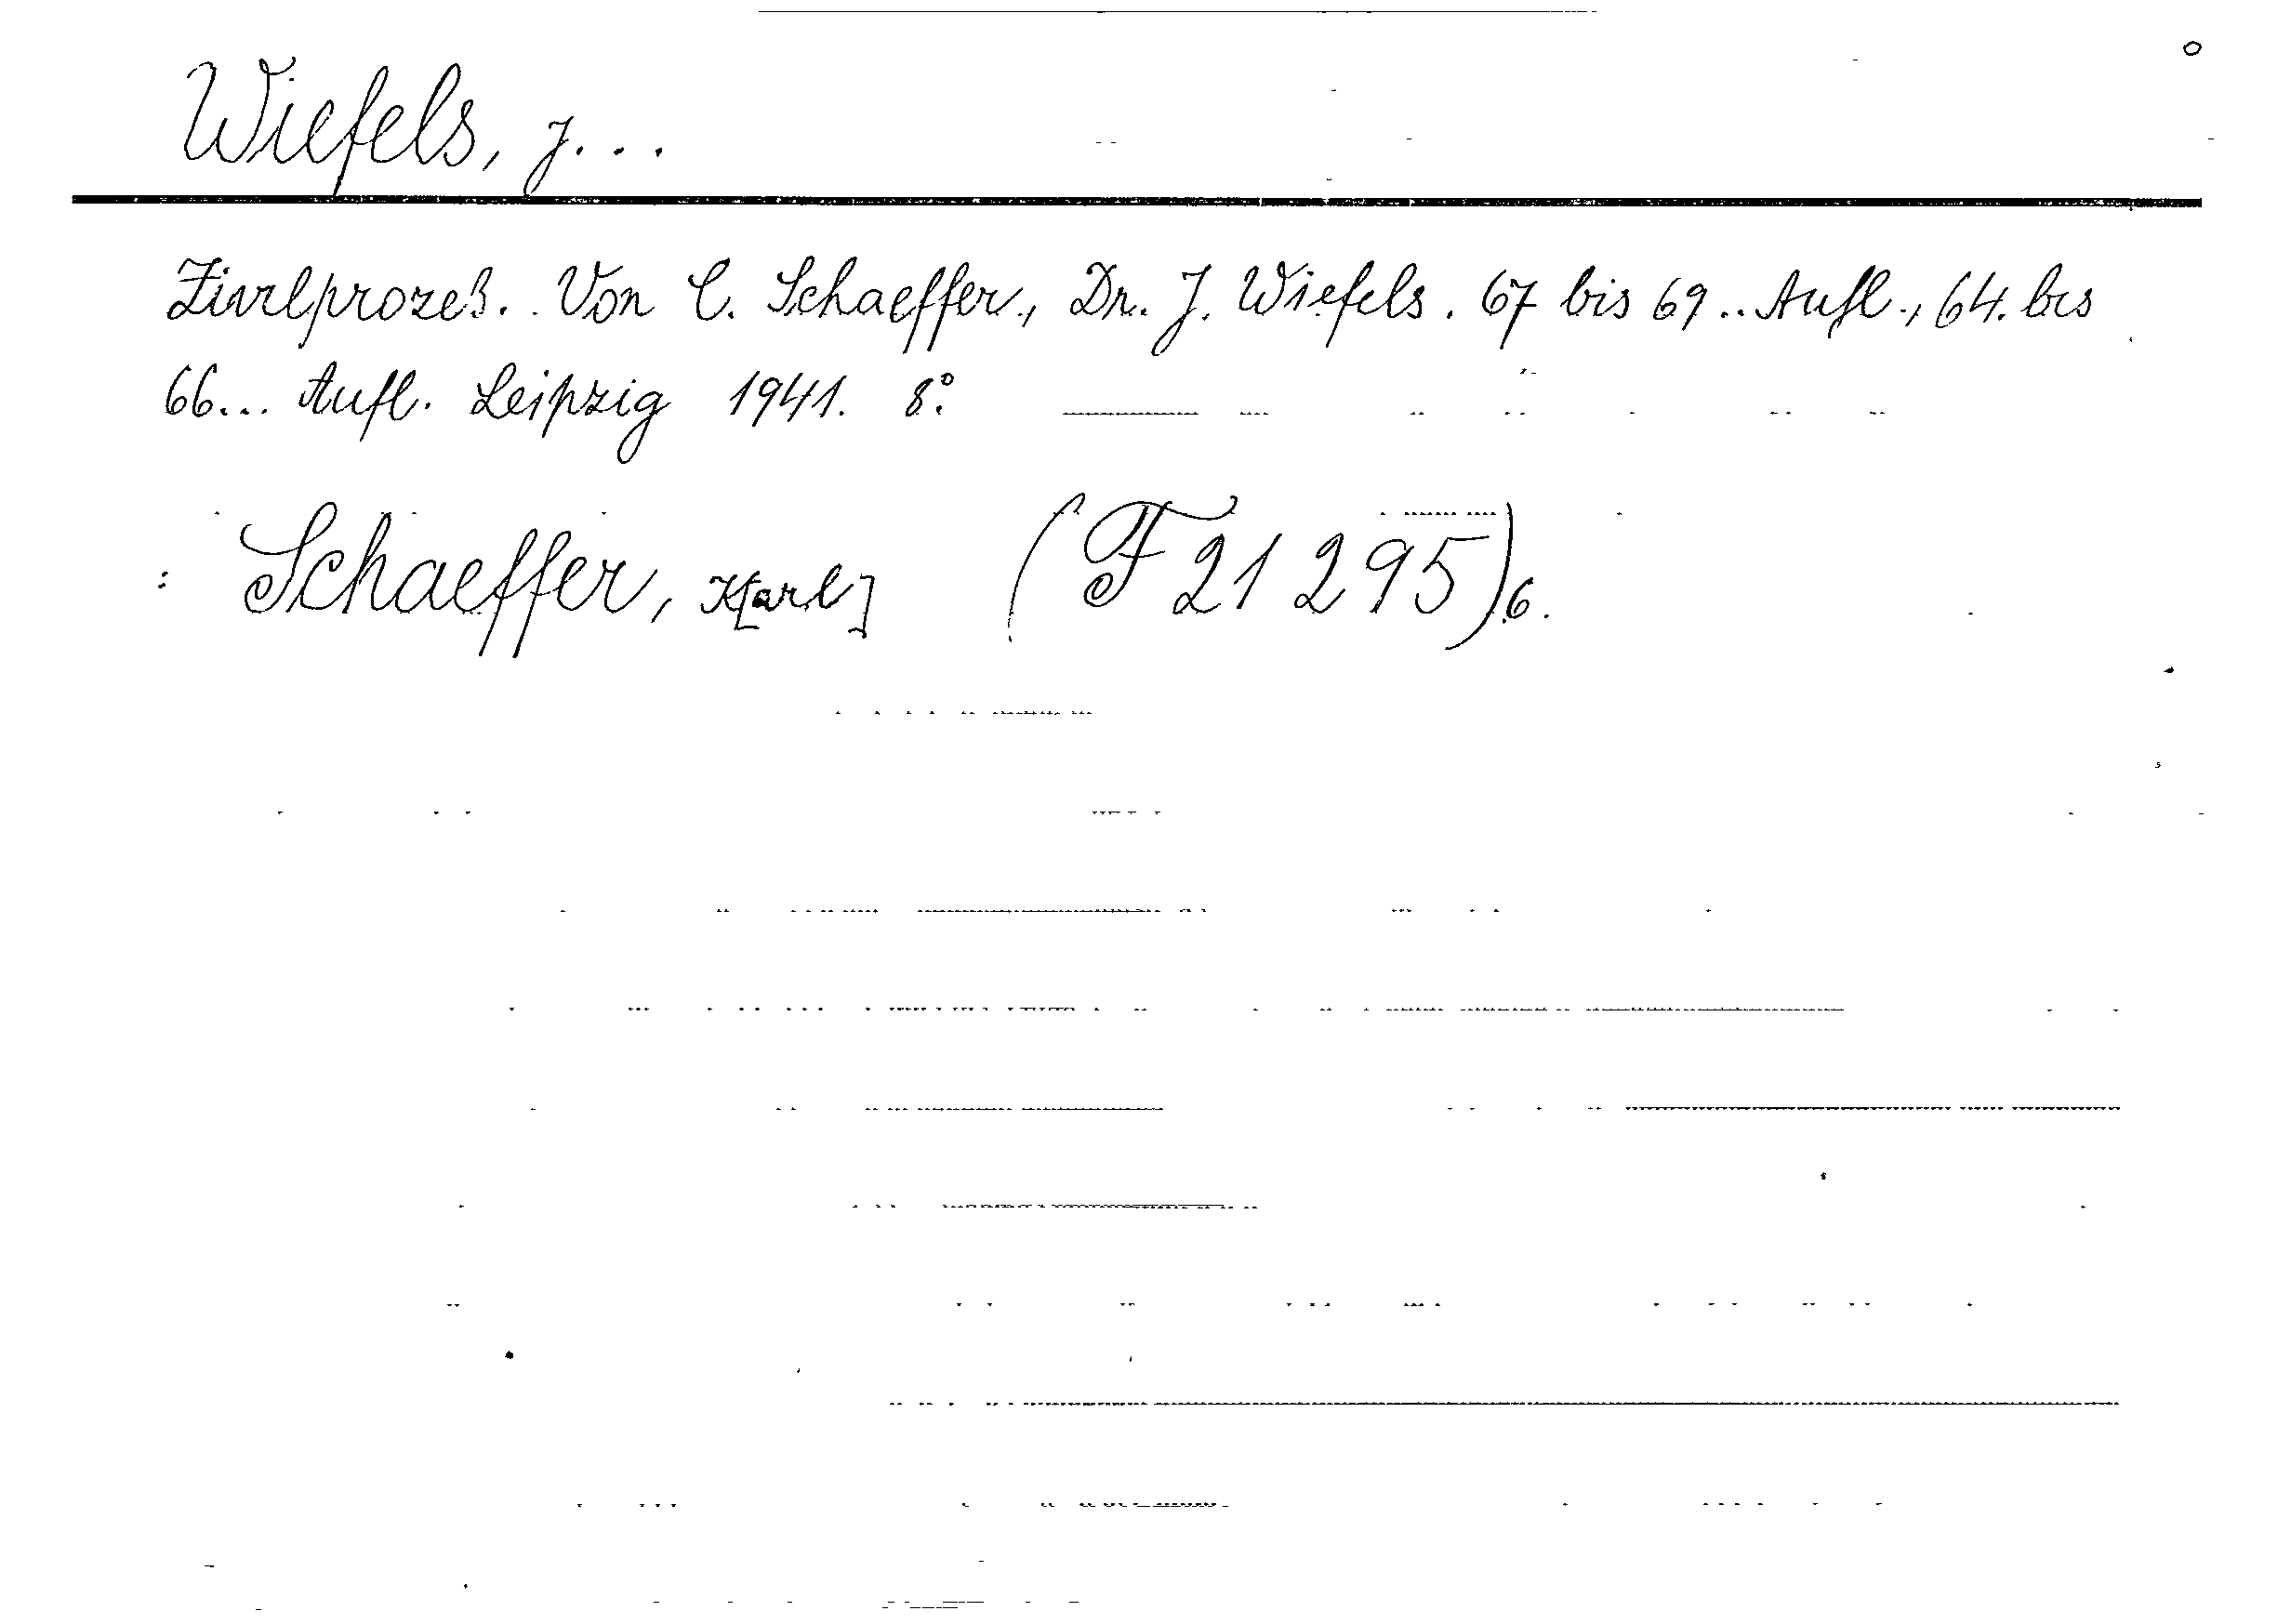 Wiefels, J...
Zivilprozeß. . Von C. Schaeffer, Dr. J. Wiefels. 67 bis 69.. Aufl., 64. bis
66... Aufl. Leipzig 1941. 8°.
: Schaeffer, K[arl] (F 21 295) 6.